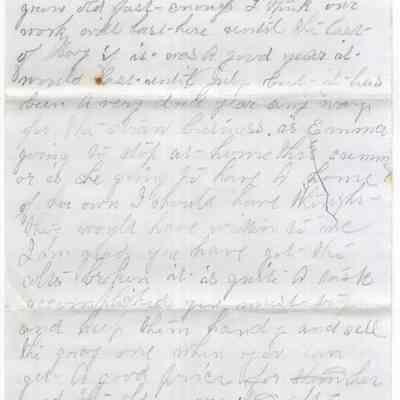 grow old fast enough I think our
work will last here until the last
of May if it is was a good year it
would last until July but it has
been a very dull year any way
for the straw business. is Emma
going to stop at home this summ
or is she going to have a home
of her own I should have thought
they would have written to me
I am glad you have got the
colts broken it is quite a task
accomplished you must try
and keep them handy and sell
the gray one when you can
get a good price for